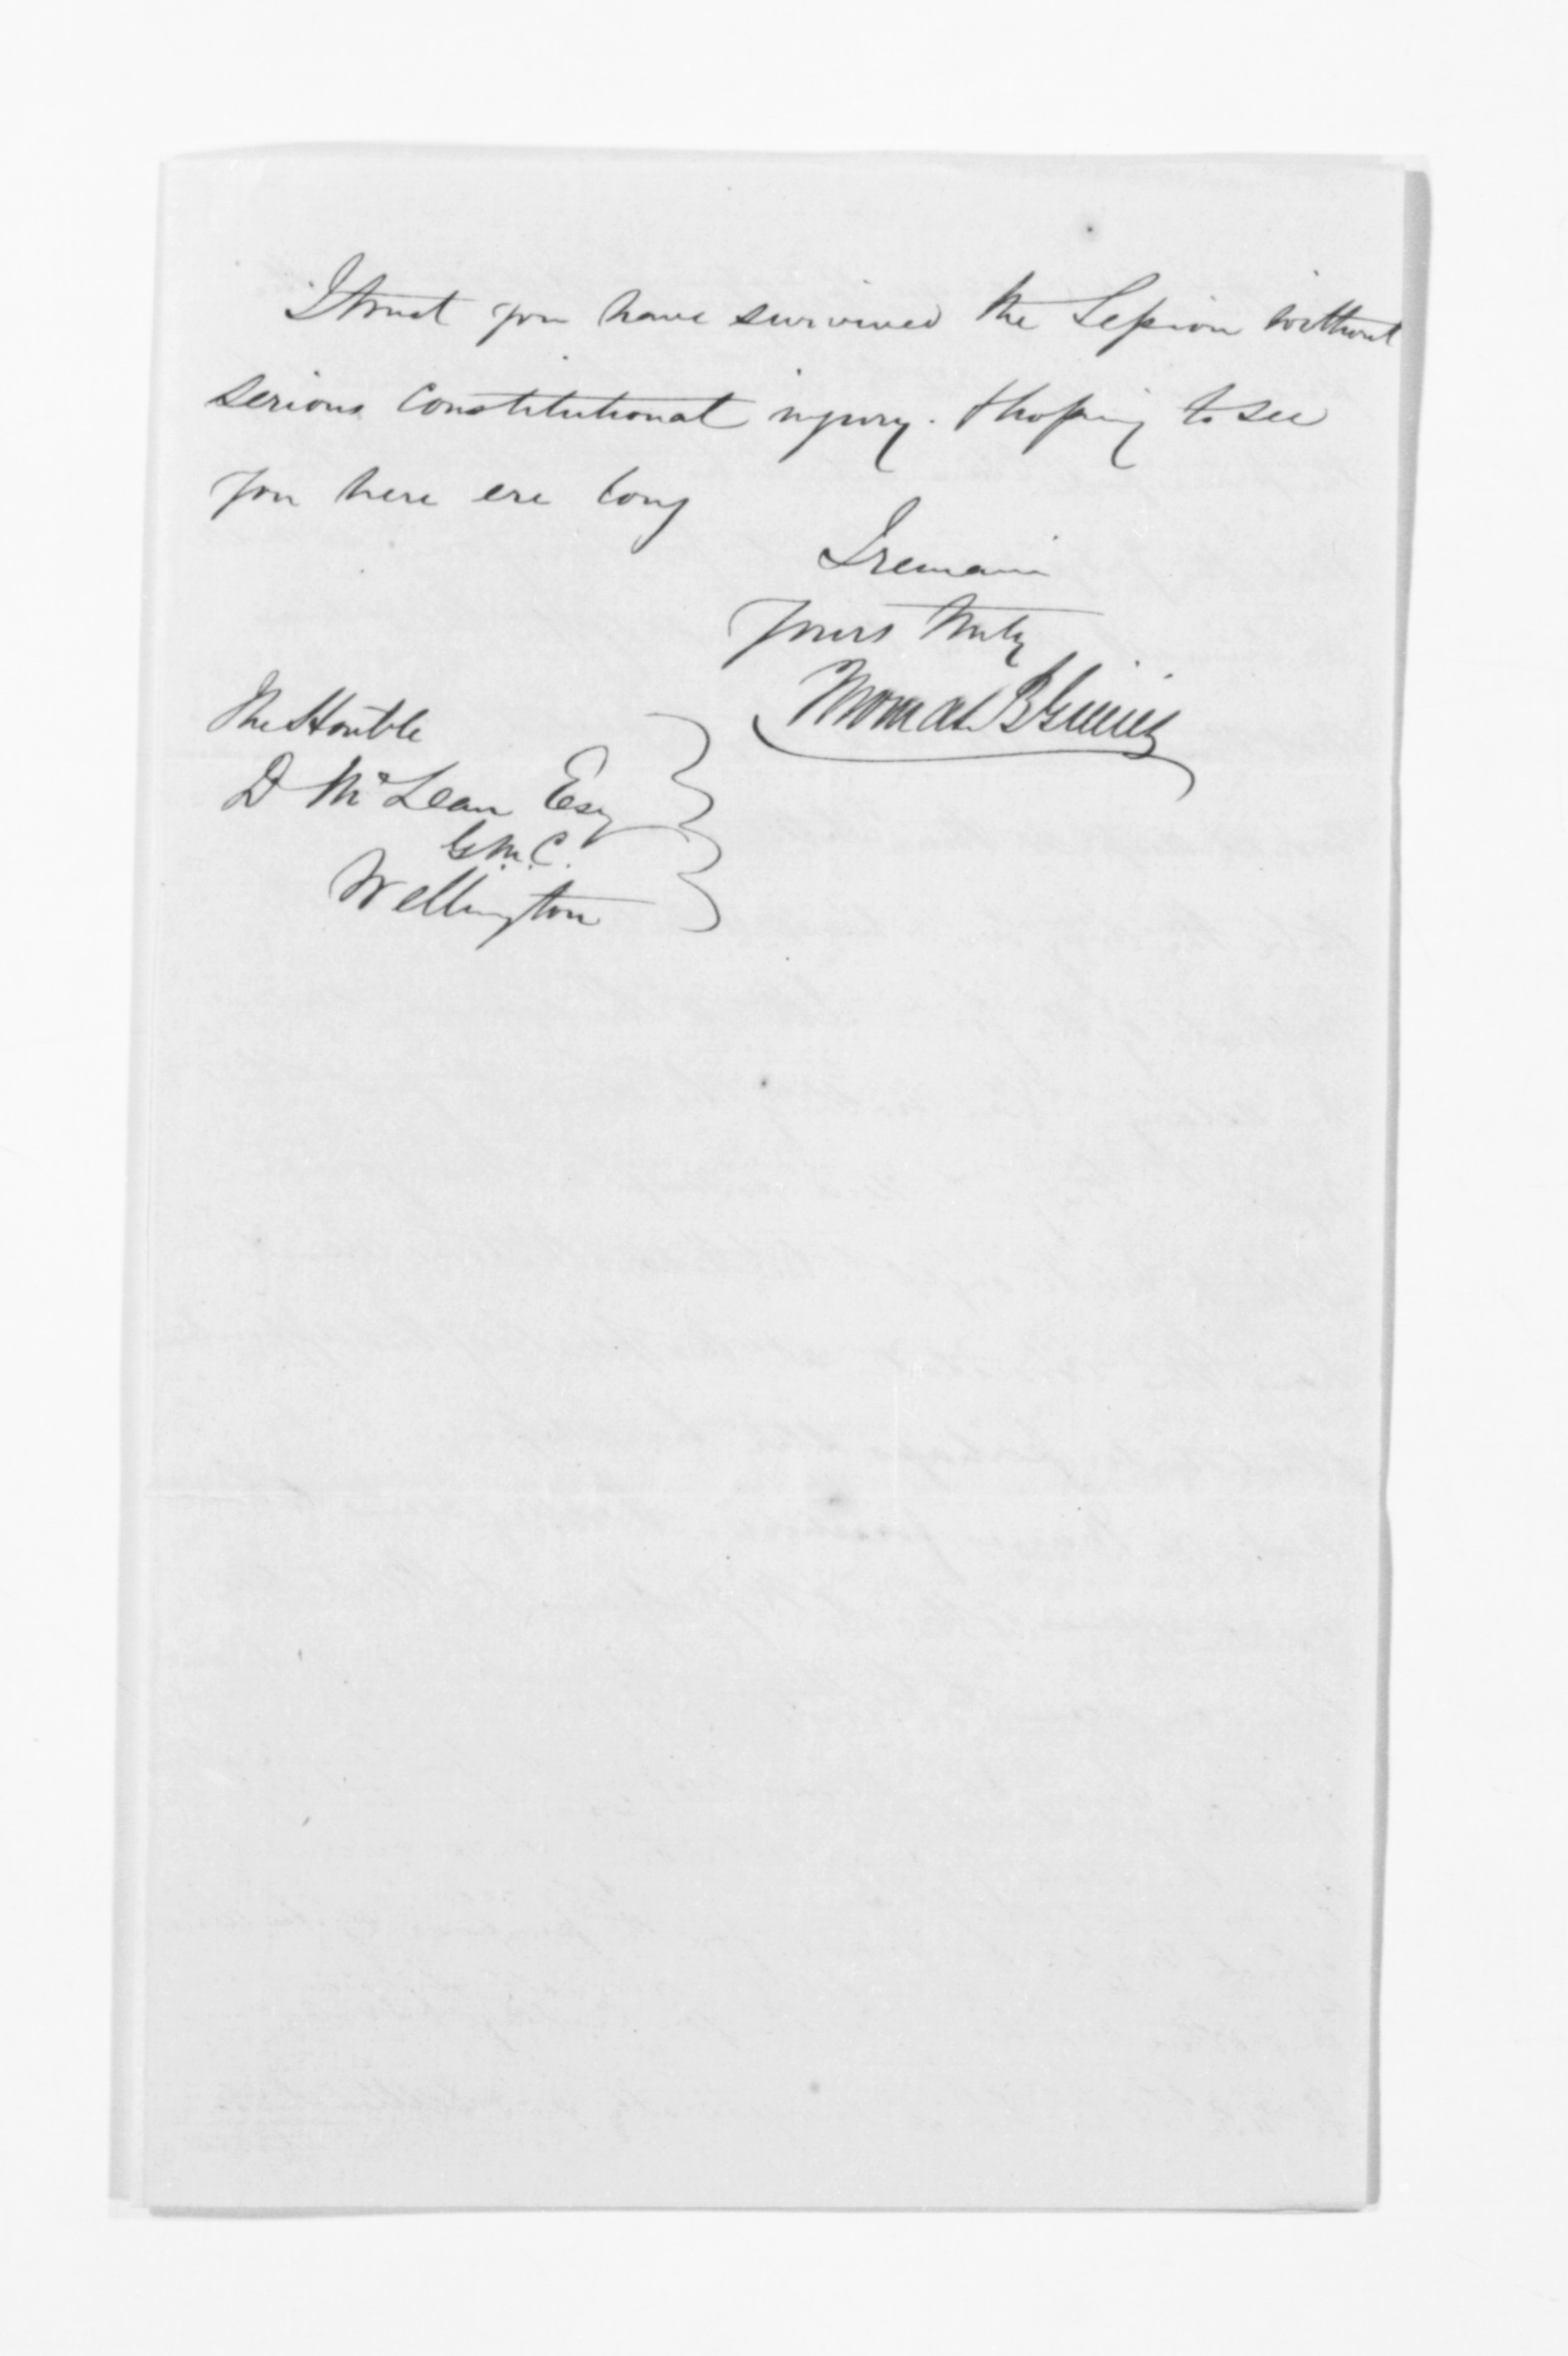 I trust you have survived the Session without
serious constitutional injury. & hoping to see
you here ere long
I remain
Yours truly
Thomas B
The Honble
D McLean Esq
G.M.C.
Wellington